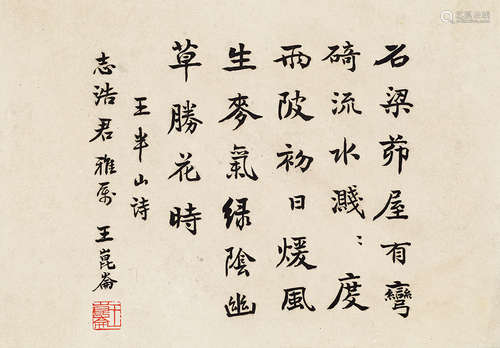 石梁茆屋有彎
碕流水濺〻度
兩陂初日煖風
生麥氣綠陰幽
草勝花時
王半山詩
志浩君雅屬 王崑崙